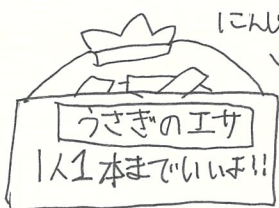 にんじ
うさぎのエサ
1人1本までいいよ!!